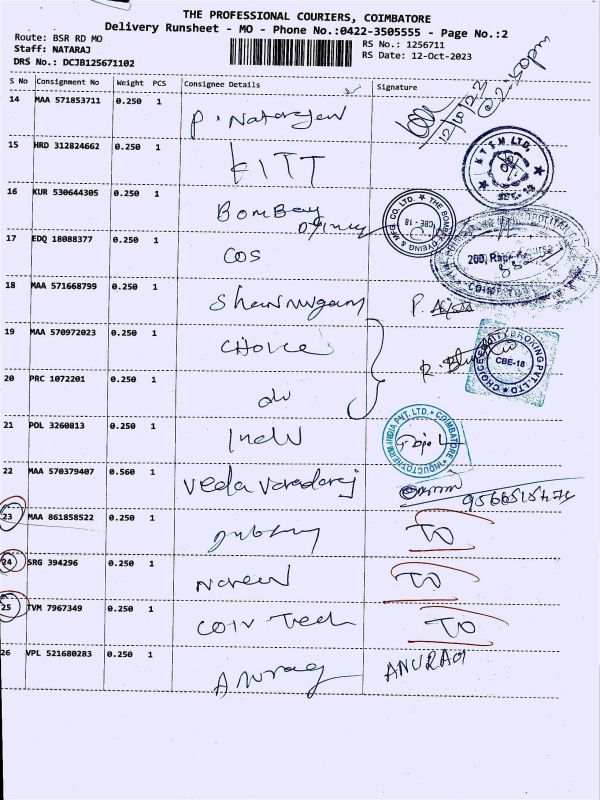 THE PROFESSIONAL COURIERS, COIMBATORE
Delivery Runsheet - MO - Phone No.:0422-3505555 - Page No.:2
Route: BSR RD MO
RS No.: 1256711
Staff: NATARAJ
RS Date: 12-Oct-2023
DRS No.: DCJB125671102
S No Consignment No Weight PCS Consignee Details Signature
12/10/23
@2.50pm
14 MAA 571853711 0.250 1 P. Natarajan
15 HRD 312824662 0.250 1 KITT
K T T M LTD.
16 KUR 530644305 0.250 1 Bombay Dyinig
THE BOMBAY DYEING & MFG. CO. LTD. CBE - 18
17 EDQ 18088377 0.250 1 COS
18 MAA 571668799 0.250 1 Shanmugam P.
19 MAA 570972023 0.250 1 CHOICE R.
CHOICE EQUITY BROKING PVT. LTD. CBE-18
20 PRC 1072201 0.250 1 do
21 POL 3260813 0.250 1
INDUCTOTHERM INDIA PVT. LTD. COIMBATORE
22 MAA 570379407 0.560 1 Veda Varadaraj
23 MAA 861858522 0.250 1 TO
24 SRG 394296 0.250 1 Naveen TO
25 TVM 7967349 0.250 1 COIV Tech TO
26 VPL 521680283 0.250 1 Anurag ANURAG